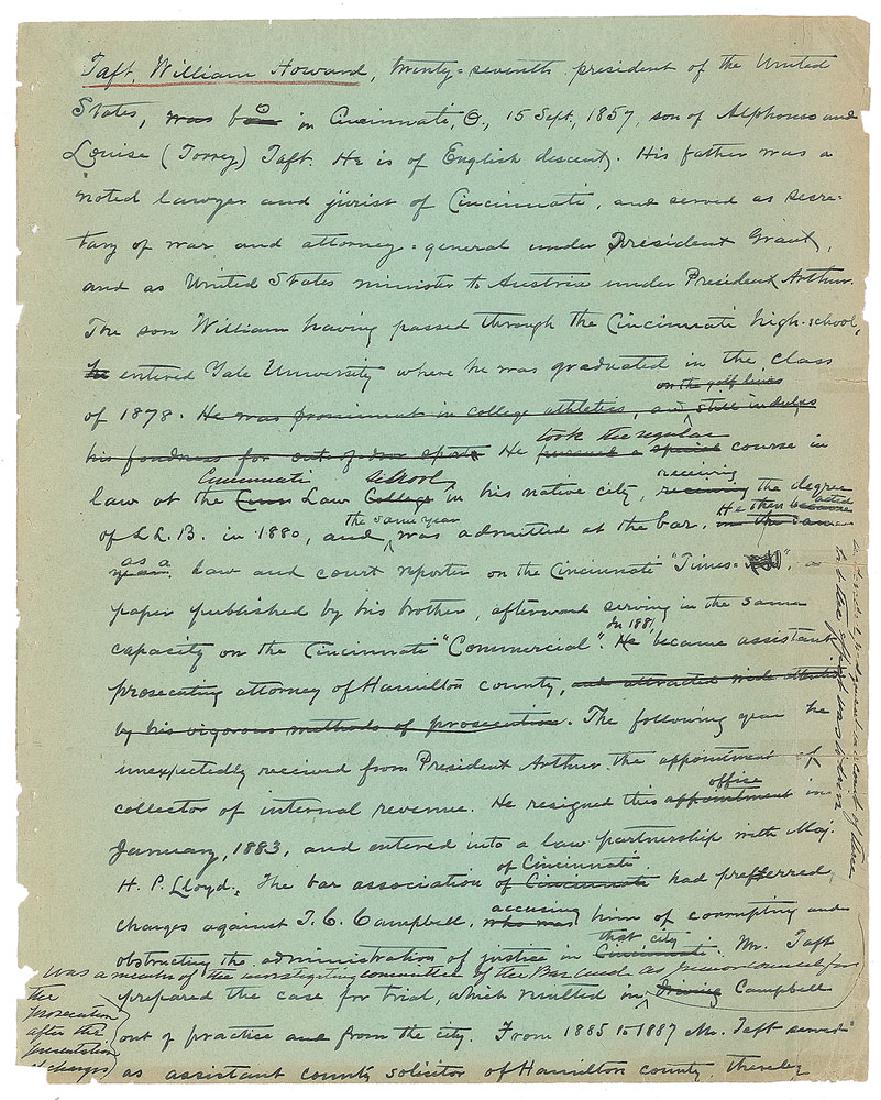 Taft, William Howard, twenty-seventh president of the United
States, was born in Cincinnati, O., 15 Sept., 1857, son of Alphonso and
Louise (Torrey) Taft. He is of English descent. His father was a
noted lawyer and jurist of Cincinnati, and served as secre-
tary of war and attorney-general under President Grant,
and as United States minister to Austria under President Arthur.
The son William having passed through the Cincinnati high-school,
he entered Yale University where he was graduated in the class
on the golf links
of 1878. He was prominent in college athletics, and still indulges
his fondness for out of door sports He pursued a special course in
took the regular
Cincinnati school receiving
law at the Cinn Law College in his native city, receiving the degree
of LL.B. in 1880, and was admitted at the bar. in the same
the same year He then became
acted
as a
year. law and court reporter on the Cincinnati "Times", a
paper published by his brother, afterward serving in the same
In 1881
capacity on the Cincinnati "Commercial". He became assistant
prosecuting attorney of Hamilton county, and attracted wide attention
by his vigorous methods of prosecution. The following year he
unexpectedly received from President Arthur the appointment of
office
collector of internal revenue. He resigned this appointment in
January, 1883, and entered into a law partnership with Maj.
of Cincinnati
H. P. Lloyd. The bar association of Cincinnati had prefferred
accusing
charges against T. C. Campbell, who was him of corrupting and
that city
obstructing the administration of justice in Cincinnati. Mr. Taft
was a member of the investigating committee of the Bar and as junior counsel for
the
prosecution
after the
presentation
of charges
prepared the case for trial, which resulted in driving Campbell
out of practice and from the city. From 1885 to 1887 Mr. Taft served
as assistant county solicitor of Hamilton county, thereby